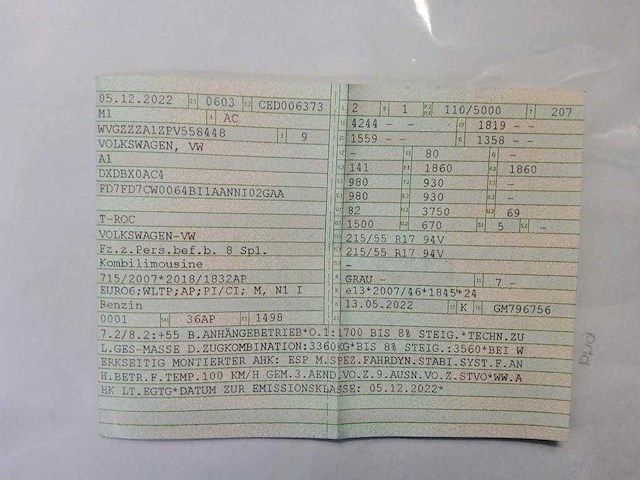 05.12.2022 0603 CED006373
M1 AC
WVGZZZA1ZPV558448 9
VOLKSWAGEN, VW
A1
DXDBX0AC4
FD7FD7CW0064BI1AANNI02GAA
T-ROC
VOLKSWAGEN-VW
Fz.z.Pers.bef.b. 8 Spl.
Kombilimousine
715/2007*2018/1832AP
EURO6;WLTP;AP;PI/CI; M, N1 I
Benzin
0001 36AP 1498
2 1 110/5000 207
4244 - - 1819 - -
1559 - - 1358 - -
- 80 -
141 1860 1860
980 930 -
980 930 -
82 3750 69
1500 670 5 -
215/55 R17 94V
215/55 R17 94V
-
GRAU - 7 -
e13*2007/46*1845*24
13.05.2022 K GM796756
7.2/8.2:+55 B.ANHÄNGEBETRIEB*O.1:1700 BIS 8% STEIG.*TECHN.ZU
L.GES-MASSE D.ZUGKOMBINATION:3360KG*BIS 8% STEIG.:3560*BEI W
ERKSEITIG MONTIERTER AHK: ESP M.SPEZ.FAHRDYN.STABI.SYST.F.AN
H.BETR.F.TEMP.100 KM/H GEM.3.AEND.VO.Z.9.AUSN.VO.Z.STVO*WW.A
HK LT.EGTG*DATUM ZUR EMISSIONSKLASSE: 05.12.2022*